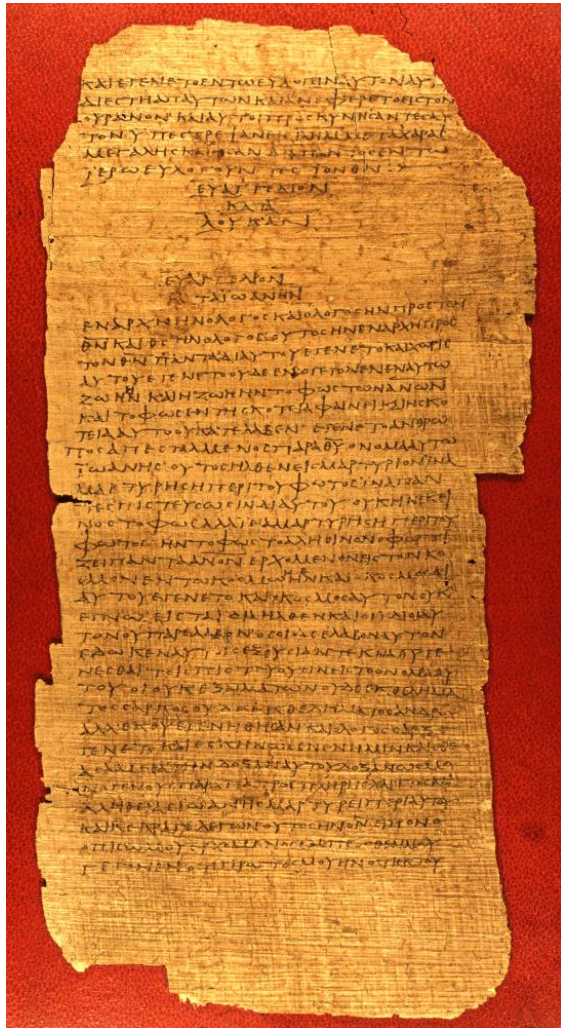 ΚΑΙ ΕΓΕΝΕΤΟ ΕΝ ΤΩ ΕΥΛΟΓΕΙΝ ΑΥΤΟΝ ΑΥ
ΔΙΕΣΤΗ ΑΠ ΑΥΤΩΝ ΚΑΙ ΑΝΕΦΕΡΕΤΟ ΕΙΣ ΤΟΝ
ΟΥΡΑΝΟΝ ΚΑΙ ΑΥΤΟΙ ΠΡΟΣΚΥΝΗΣΑΝΤΕΣ ΑΥ
ΤΟΝ ΥΠΕΣΤΡΕΨΑΝ ΕΙΣ ΜΕΤΑ ΧΑΡΑΣ
ΜΕΓΑΛΗΣ ΚΑΙ ΗΣΑΝ ΕΝ ΤΩ
ΙΕΡΩ ΕΥΛΟΓΟΥΝΤΕΣ ΤΟΝ ΘΝ
ΕΥΑΓΓΕΛΙΟΝ
ΚΑΤΑ
ΛΟΥΚΑΝ
ΕΥΑΓΓΕΛΙΟΝ
ΚΑΤΑ ΙΩΑΝΗΝ
ΕΝ ΑΡΧΗ ΗΝ Ο ΛΟΓΟΣ ΚΑΙ Ο ΛΟΓΟΣ ΗΝ ΠΡΟΣ ΤΟΝ
ΘΝ ΚΑΙ ΘΣ ΗΝ Ο ΛΟΓΟΣ ΟΥΤΟΣ ΗΝ ΕΝ ΑΡΧΗ ΠΡΟΣ
ΤΟΝ ΘΝ ΠΑΝΤΑ ΔΙ ΑΥΤΟΥ ΕΓΕΝΕΤΟ ΚΑΙ ΧΩΡΙΣ
ΑΥΤΟΥ ΕΓΕΝΕΤΟ ΟΥΔΕ ΕΝ Ο ΓΕΓΟΝΕΝ ΕΝ ΑΥΤΩ
ΖΩΗ ΗΝ ΚΑΙ Η ΖΩΗ ΗΝ ΤΟ ΦΩΣ ΤΩΝ ΑΝΩΝ
ΚΑΙ ΤΟ ΦΩΣ ΕΝ ΤΗ ΣΚΟΤΕΙΑ ΦΑΙΝΕΙ ΚΑΙ Η ΣΚΟ
ΤΕΙΑ ΑΥΤΟ ΟΥ ΚΑΤΕΛΑΒΕΝ ΕΓΕΝΕΤΟ ΑΝΘΡΩ
ΠΟΣ ΑΠΕΣΤΑΛΜΕΝΟΣ ΠΑΡΑ ΘΥ ΟΝΟΜΑ ΑΥΤΩ
ΙΩΑΝΗΣ ΟΥΤΟΣ ΗΛΘΕΝ ΕΙΣ ΜΑΡΤΥΡΙΟΝ ΙΝΑ
ΜΑΡΤΥΡΗΣΗ ΠΕΡΙ ΤΟΥ ΦΩΤΟΣ ΙΝΑ ΠΑΝ
ΤΕΣ ΠΙΣΤΕΥΣΩΣΙΝ ΔΙ ΑΥΤΟΥ ΟΥΚ ΗΝ ΕΚΕΙ
ΝΟΣ ΤΟ ΦΩΣ ΑΛΛ ΙΝΑ ΜΑΡΤΥΡΗΣΗ ΠΕΡΙ ΤΟΥ
ΦΩΤΟΣ ΗΝ ΤΟ ΦΩΣ ΤΟ ΑΛΗΘΙΝΟΝ Ο ΦΩΤΙ
ΖΕΙ ΠΑΝΤΑ ΑΝΟΝ ΕΡΧΟΜΕΝΟΝ ΕΙΣ ΤΟΝ ΚΟ
ΣΜΟΝ ΕΝ ΤΩ ΚΟΣΜΩ ΗΝ ΚΑΙ Ο ΚΟΣΜΟΣ ΔΙ
ΑΥΤΟΥ ΕΓΕΝΕΤΟ ΚΑΙ Ο ΚΟΣΜΟΣ ΑΥΤΟΝ ΟΥΚ
ΕΓΝΩ ΕΙΣ ΤΑ ΙΔΙΑ ΗΛΘΕΝ ΚΑΙ ΟΙ ΙΔΙΟΙ ΑΥ
ΤΟΝ ΟΥ ΠΑΡΕΛΑΒΟΝ ΟΣΟΙ ΔΕ ΕΛΑΒΟΝ ΑΥΤΟΝ
ΕΔΩΚΕΝ ΑΥΤΟΙΣ ΕΞΟΥΣΙΑΝ ΤΕΚΝΑ ΘΥ ΓΕ
ΝΕΣΘΑΙ ΤΟΙΣ ΠΙΣΤΕΥΟΥΣΙΝ ΕΙΣ ΤΟ ΟΝΟΜΑ ΑΥ
ΤΟΥ ΟΙ ΟΥΚ ΕΞ ΑΙΜΑΤΩΝ ΟΥΔΕ ΕΚ ΘΕΛΗΜΑ
ΤΟΣ ΣΑΡΚΟΣ ΟΥΔΕ ΕΚ ΘΕΛΗΜΑΤΟΣ ΑΝΔΡΟΣ
ΑΛΛ ΕΚ ΘΥ ΕΓΕΝΗΘΗΣΑΝ ΚΑΙ Ο ΛΟΓΟΣ ΣΑΡΞ Ε
ΓΕΝΕΤΟ ΚΑΙ ΕΣΚΗΝΩΣΕΝ ΕΝ ΗΜΙΝ ΚΑΙ ΕΘΕ
ΑΣΑΜΕΘΑ ΤΗΝ ΔΟΞΑΝ ΑΥΤΟΥ ΔΟΞΑΝ ΩΣ ΜΟ
ΝΟΓΕΝΟΥΣ ΠΑΡΑ ΠΑΤΡΟΣ ΠΛΗΡΗΣ ΧΑΡΙΤΟΣ ΚΑΙ
ΑΛΗΘΕΙΑΣ ΙΩΑΝΗΣ ΜΑΡΤΥΡΕΙ ΠΕΡΙ ΑΥΤΟΥ
ΚΑΙ ΚΕΚΡΑΓΕ ΛΕΓΩΝ ΟΥΤΟΣ ΗΝ ΟΝ ΕΙΠΟΝ Ο
ΟΠΙΣΩ ΜΟΥ ΕΡΧΟΜΕΝΟΣ ΕΜΠΡΟΣΘΕΝ ΜΟΥ
ΓΕΓΟΝΕΝ ΟΤΙ ΠΡΩΤΟΣ ΜΟΥ ΗΝ ΟΤΙ ΕΚ ΤΟΥ